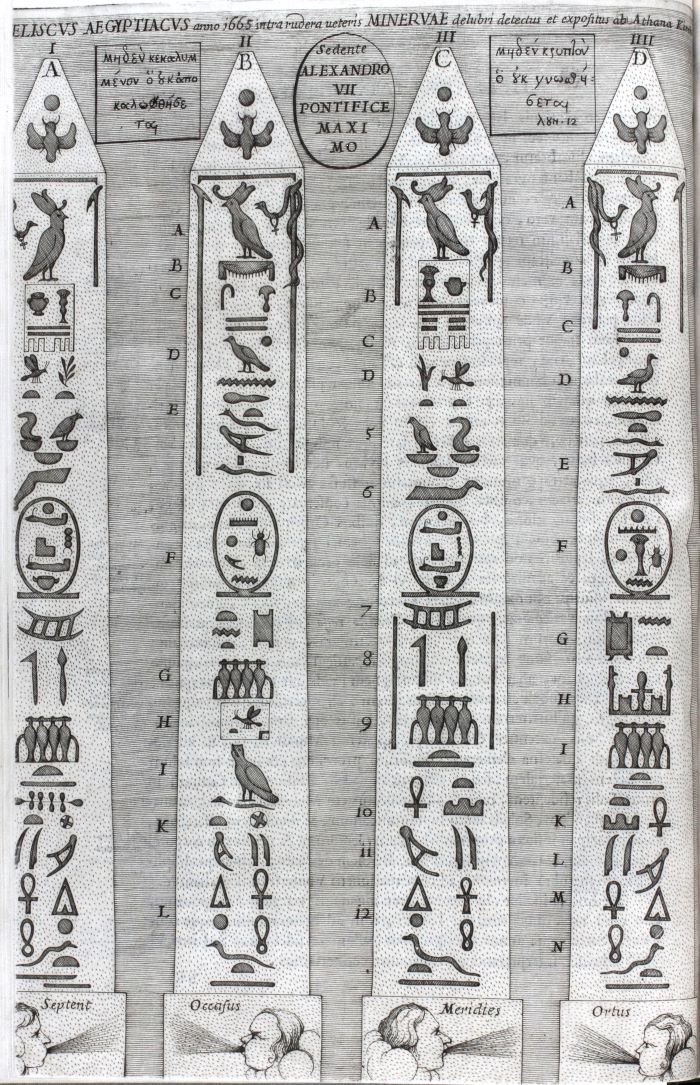 ELISCVS AEGYPTIACVS anno 1665 intra rudera veteris MINERVAE delubri detectus et expositus ab Athana
I
II
III
IIII
A
B
C
D
μηδὲν κεκαλυμ
μένον ὅ ȣκ ἀπο
ται
Sedente
ALEXANDRO
VII
PONTIFICE
MAXI
MO
μηδέν κρυπτὸν
ὅ ȣκ γνωσθή-
σεται
λȣκ·12
A
B
C
D
E
F
G
H
I
K
L
A
B
C
D
5
6
7
8
9
10
11
12
A
B
C
D
E
F
G
H
I
K
L
M
N
Septent
Occasus
Meridies
Ortus